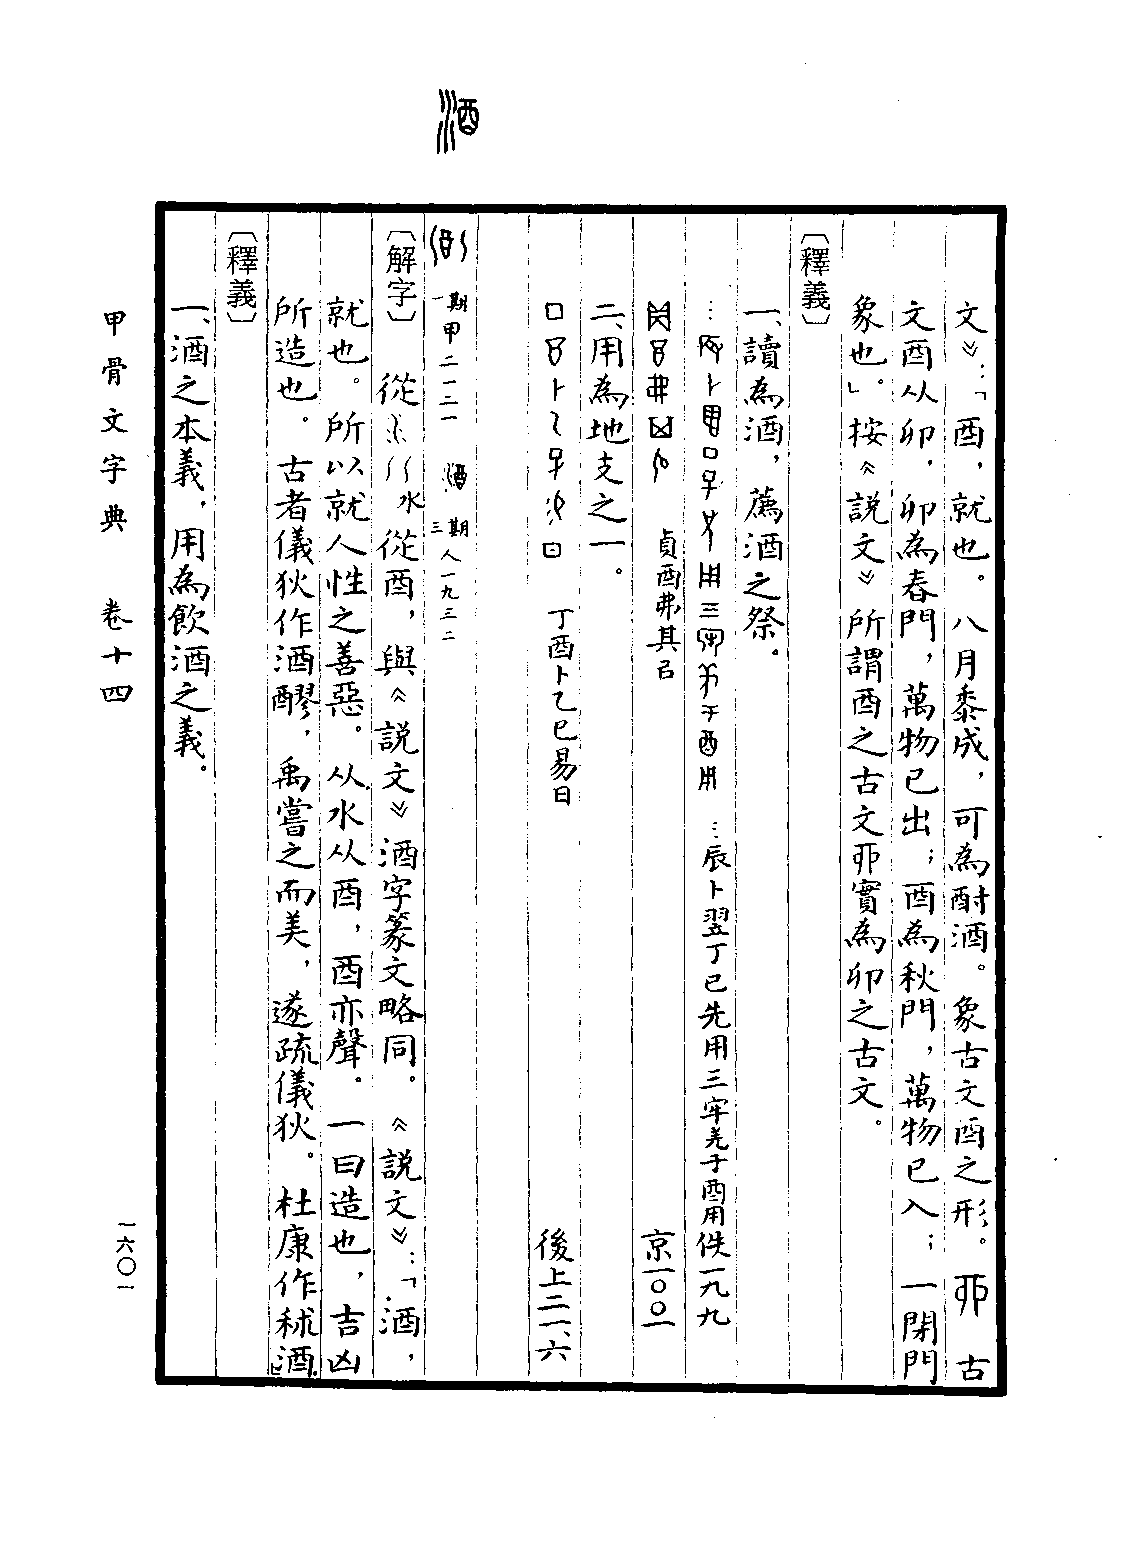 酒
文》：「酉，就也。八月黍成，可為酎酒。象古文酉之形。丣 古
文酉从卯，卯為春門，萬物已出；酉為秋門，萬物已入；一閉門
象也」。按《說文》所謂酉之古文丣實為卯之古文。
〔釋義〕
一、讀為酒，薦酒之祭。
…辰卜翌丁巳先用三牢羌于酉用 佚一九九
貞酉弗其 京一〇〇一
二、用為地支之一。
丁酉卜乙巳易日 後上二一、六
一期甲二一二一 三期人一九三二
〔解字〕 從水從酉，與《說文》酒字篆文略同。《說文》：「酒，
就也。所以就人性之善惡。从水从酉，酉亦聲。一曰造也，吉凶
所造也。古者儀狄作酒醪，禹嘗之而美，遂疏儀狄。杜康作秫酒」
〔釋義〕
一、酒之本義，用為飲酒之義。
甲骨文字典 卷十四
一六〇一